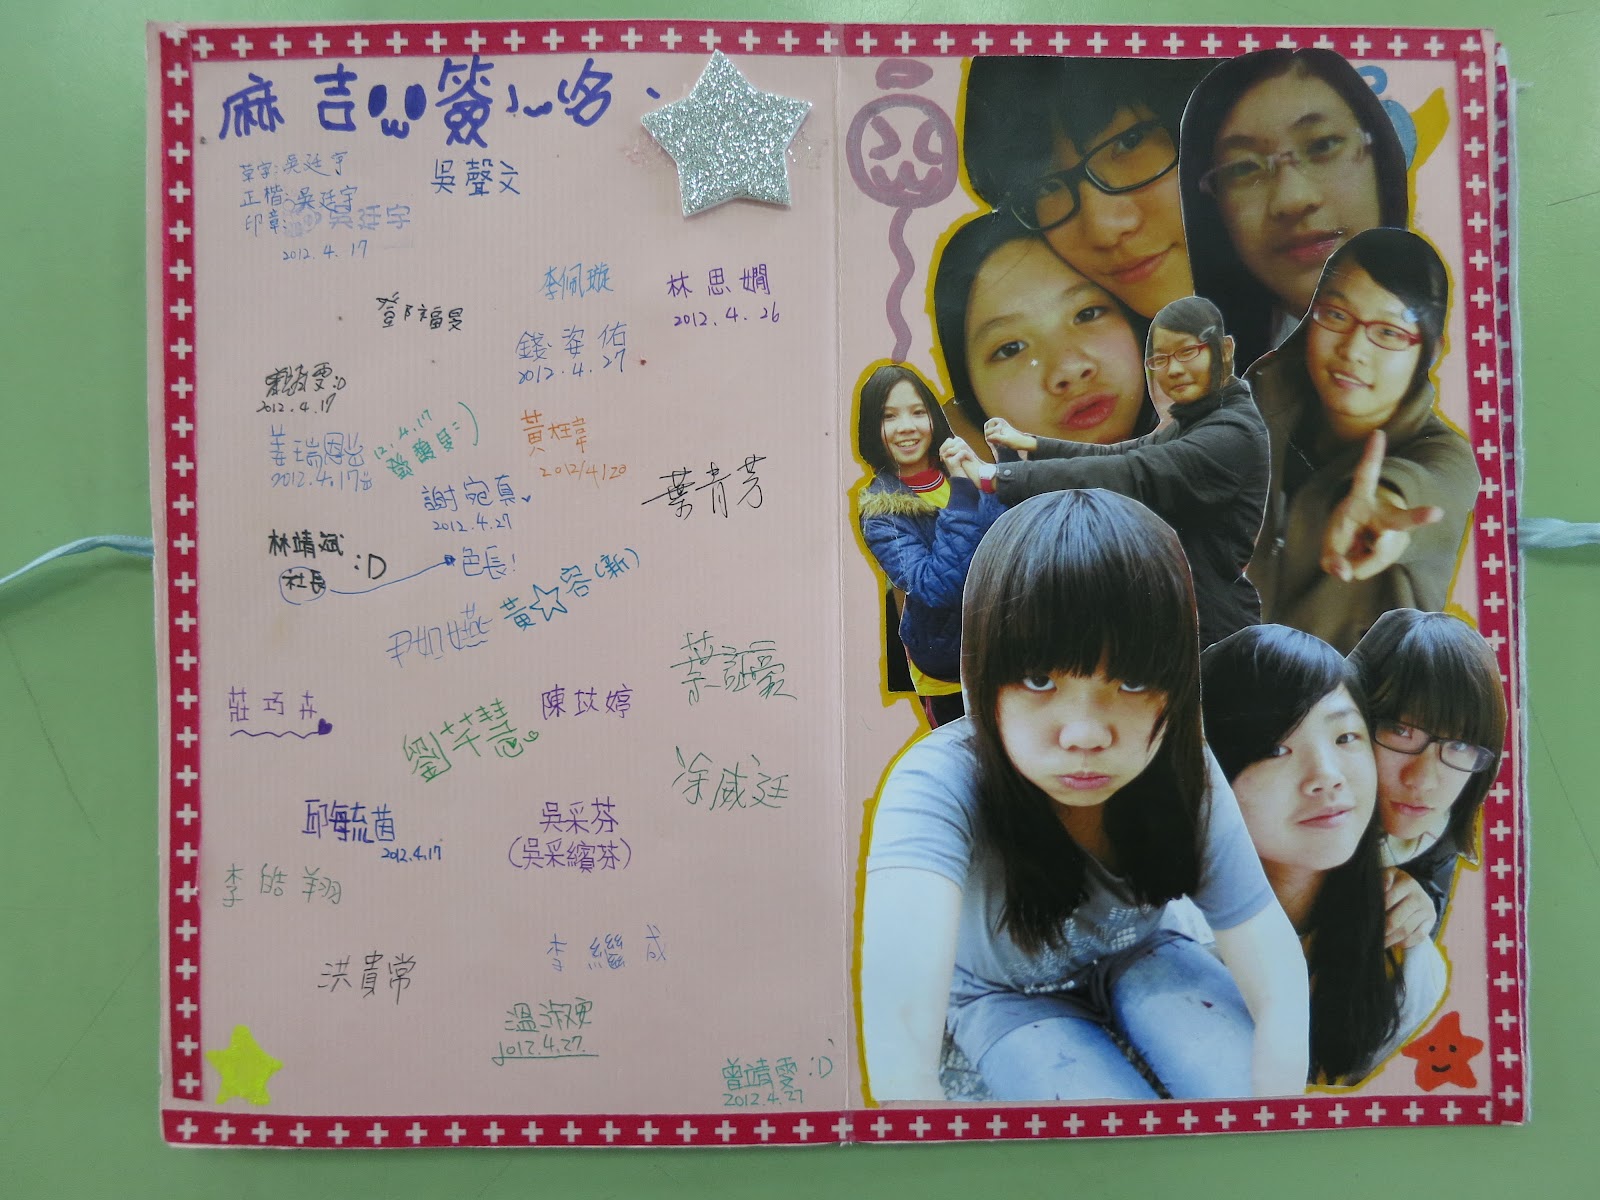 麻吉簽名
草字:吳廷宇
正楷:吳廷宇
印章:吳廷宇
2012.4.17
吳聲文
李佩璇
林思嫺
2012.4.26
鄧福旻
錢姿佑
2012.4.27
2012.4.17
姜瑞恩
2012.4.17
12.4.17
黃
2012/4/20
謝宛真
2012.4.27
葉青芳
林靖斌 :D
社長
色長!
黃☆容(新)
尹
莊巧卉
劉芊慧
陳苡婷
葉
涂威廷
邱毓茵
2012.4.17
吳采芬
(吳采繽芬)
李皓翔
洪貴常
李繼成
溫淑雯
2012.4.27.
曾靖雯 :D
2012.4.27